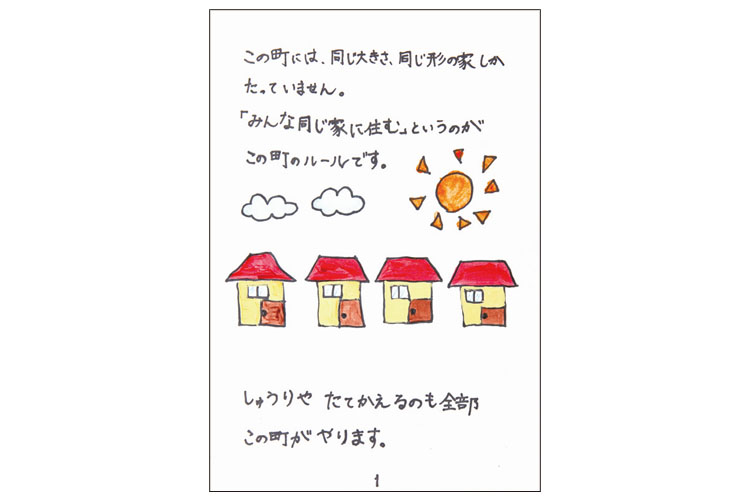 この町には、同じ大きさ、同じ形の家しか
たっていません。
「みんな同じ家に住む」というのが
この町のルールです。
しゅうりや たてかえるのも全部
この町が やります。
1